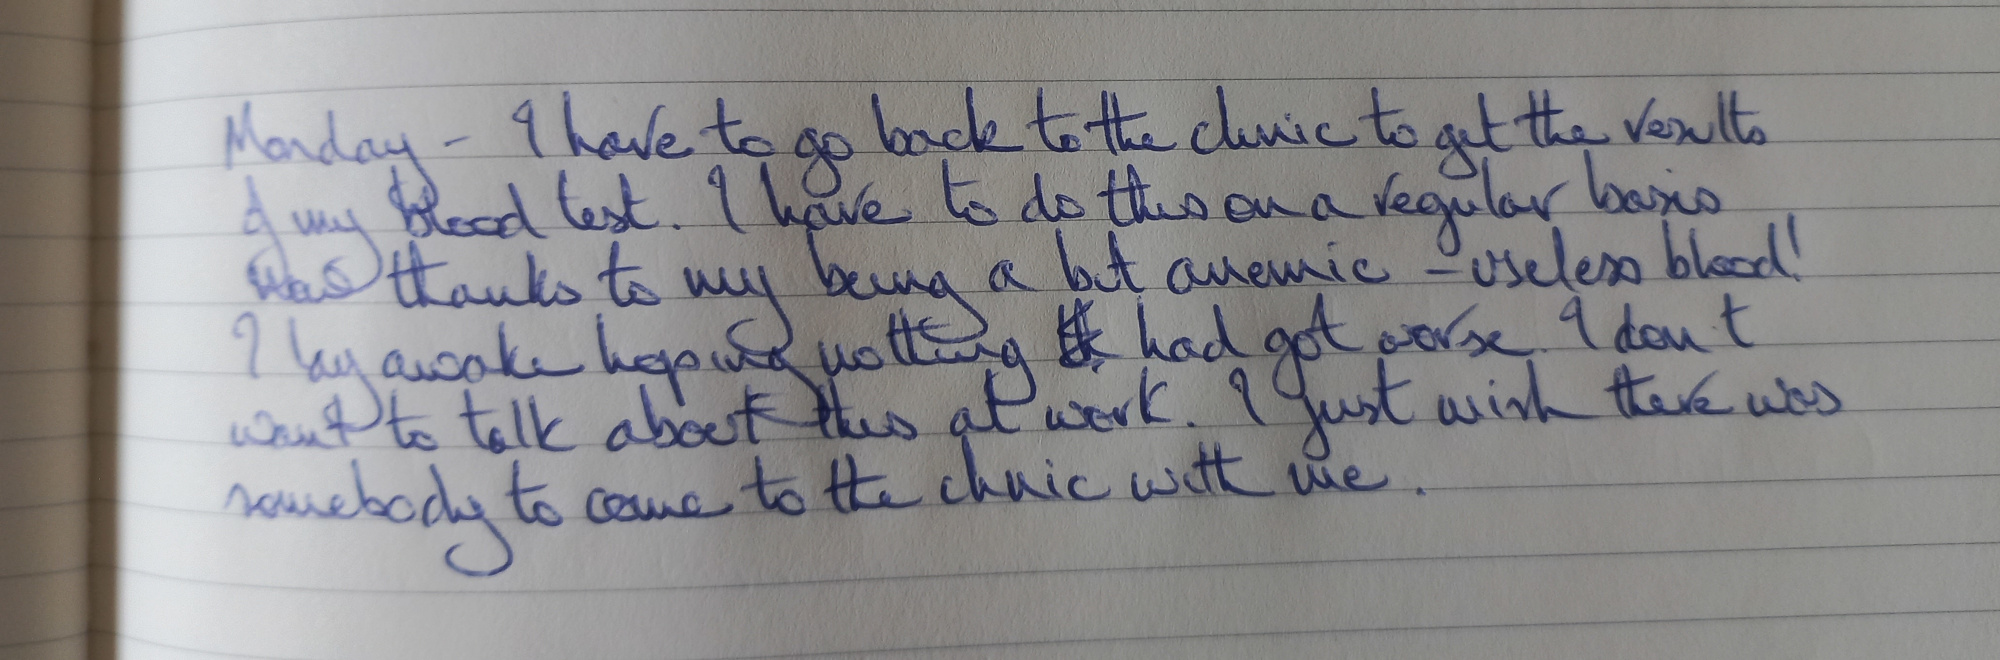 Monday - I have to go back to the clinic to get the results
of my blood test. I have to do this on a regular basis
thanks to my being a bit anemic - useless blood!
I lay awake hoping nothing had got worse. I don't
want to talk about this at work. I just wish there was
somebody to come to the clinic with me.